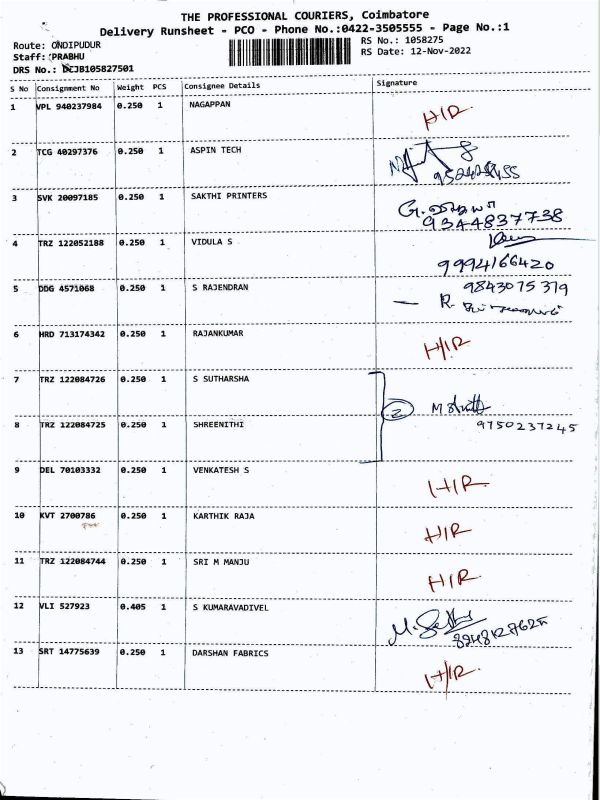 THE PROFESSIONAL COURIERS, Coimbatore
Delivery Runsheet - PCO - Phone No.:0422-3505555 - Page No.:1
Route: ONDIPUDUR
RS No.: 1058275
Staff: PRABHU
RS Date: 12-Nov-2022
DRS No.: DCJB105827501
S No Consignment No Weight PCS Consignee Details Signature
1 VPL 940237984 0.250 1 NAGAPPAN H/R
2 TCG 40297376 0.250 1 ASPIN TECH
3 SVK 20097185 0.250 1 SAKTHI PRINTERS G.
9344837738
4 TRZ 122052188 0.250 1 VIDULA S
9994166420
5 DDG 4571068 0.250 1 S RAJENDRAN 9843075379
R.
6 HRD 713174342 0.250 1 RAJANKUMAR H/R
7 TRZ 122084726 0.250 1 S SUTHARSHA
2
8 TRZ 122084725 0.250 1 SHREENITHI 9750237245
9 DEL 70103332 0.250 1 VENKATESH S H/R
10 KVT 2700786 0.250 1 KARTHIK RAJA H/R
11 TRZ 122084744 0.250 1 SRI M MANJU H/R
12 VLI 527923 0.405 1 S KUMARAVADIVEL
13 SRT 14775639 0.250 1 DARSHAN FABRICS H/R